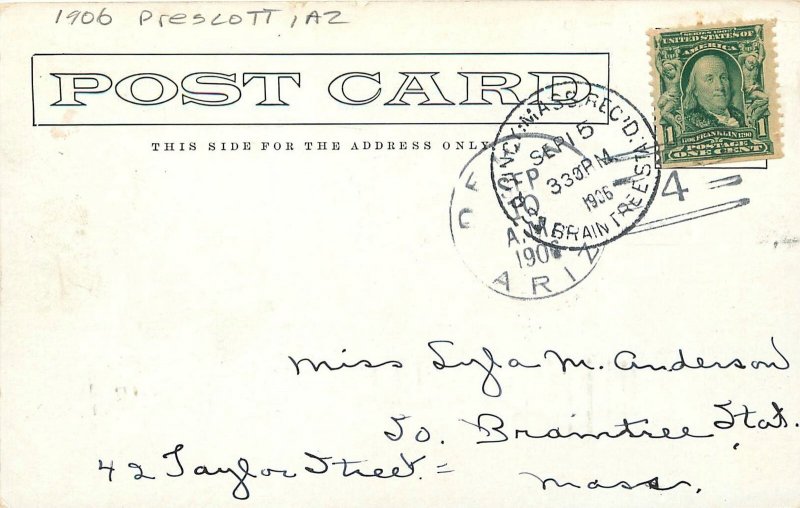 1906 Prescott, AZ
SERIES 1902
UNITED STATES OF
AMERICA
1 FRANKLIN 1790 1
POSTAGE
ONE CENT
POST CARD
THIS SIDE FOR THE ADDRESS ONLY
MASS. REC'D.
SEP 15
330 PM
1906
BRAINTREE STA.
4
10
A.M
1906
ARIZ
Miss Lyla M. Anderson
So. Braintree Stat.
42 Taylor Street. =
Mass.